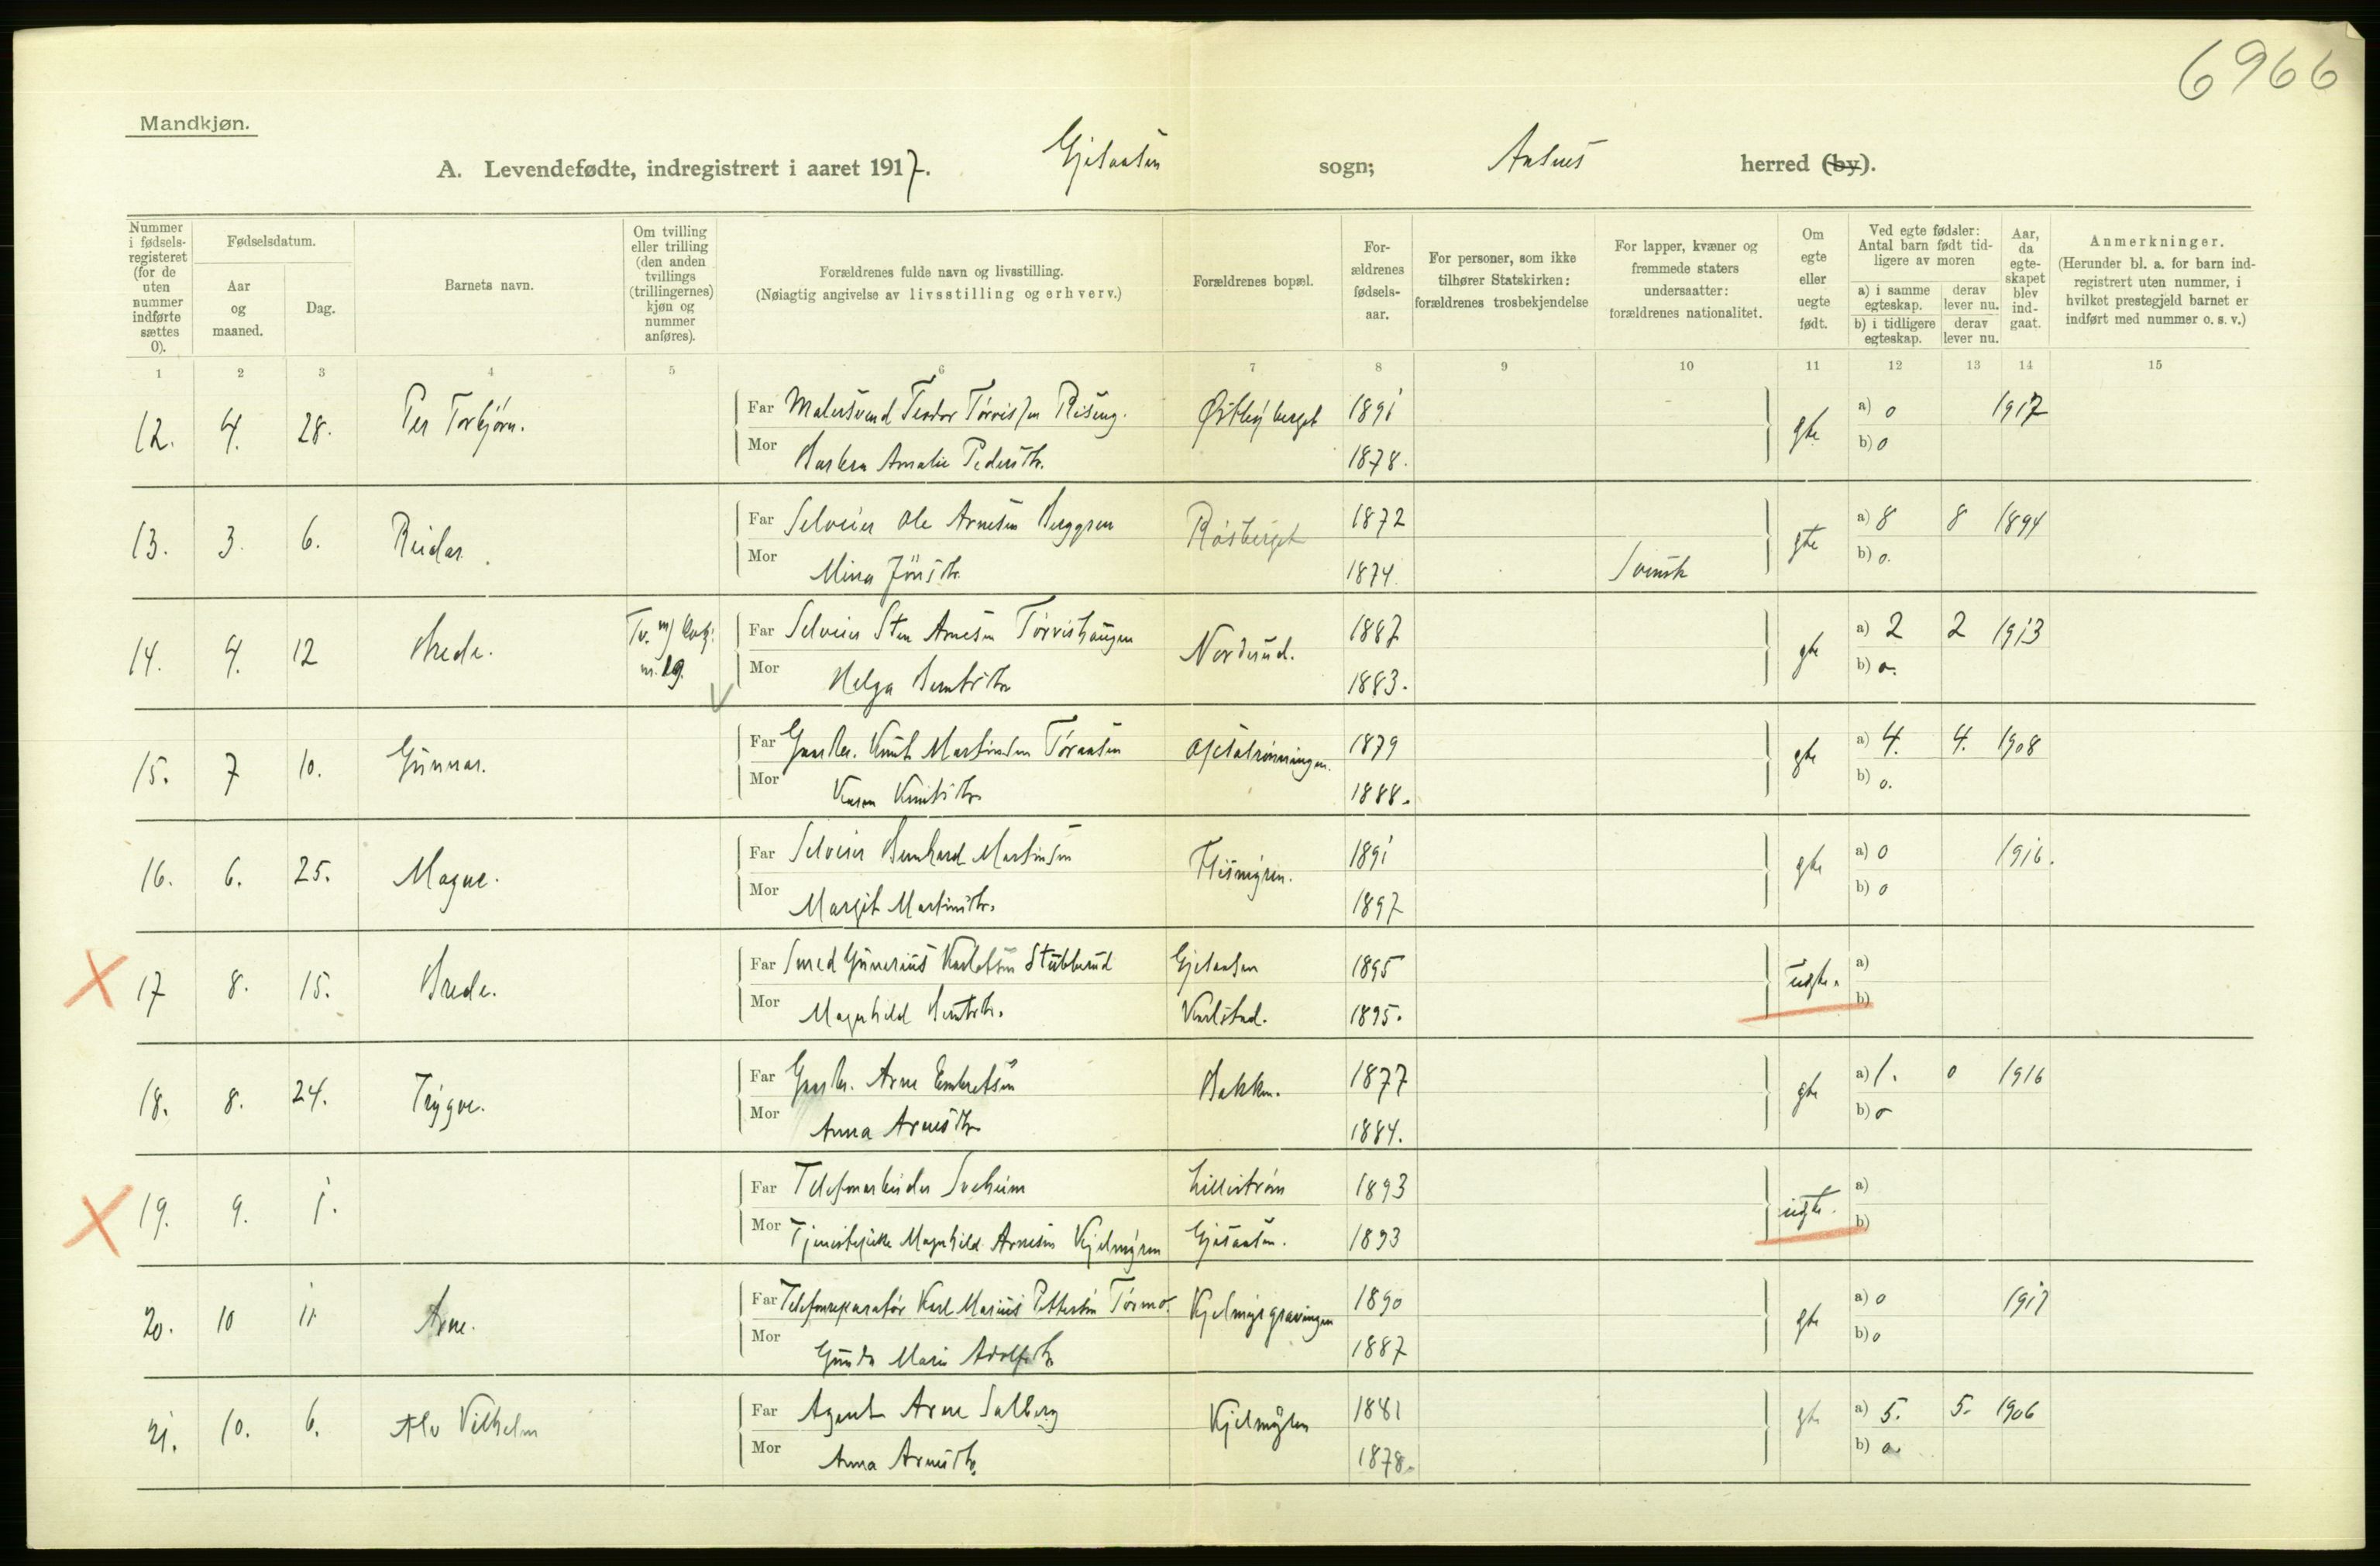 6966
Mandkjøn.
A. Levendefødte, indregistrert i aaret 1917. Gjesaasen sogn; Aasnes herred (by).
Nummer i fødselsregisteret (for de uten nummer indførte sættes 0).
Fødselsdatum.
Aar og maaned.
Dag.
Barnets navn.
Om tvilling eller trilling (den anden tvillings (trillingernes) kjøn og nummer anføres).
Forældrenes fulde navn og livsstilling.
(Nøiagtig angivelse av livsstilling og erhverv.)
Forældrenes bopæl.
Forældrenes fødselsaar.
For personer, som ikke tilhører Statskirken: forældrenes trosbekjendelse
For lapper, kvæner og fremmede staters undersaatter: forældrenes nationalitet.
Om egte eller uegte født.
Ved egte fødsler: Antal barn født tidligere av moren
a) i samme egteskap. derav lever nu.
b) i tidligere egteskap. derav lever nu.
Aar, da egteskapet blev indgaat.
Anmerkninger.
(Herunder bl. a. for barn indregistrert uten nummer, i hvilket prestegjeld barnet er indført med nummer o. s. v.)
1 2 3 4 5 6 7 8 9 10 11 12 13 14 15
12. 4. 28. Per Torbjørn. Far Malersvend Teodor Tørrissen Rising. Østbyberget 1891 gte a) 0 1917
Mor Barbra Amalie Pedersdtr. 1878. b) 0
13. 3. 6. Reidar. Far Selveier Ole Arnesen Berggren Råsberget 1872 gte a) 8 8 1894
Mor Mina Jönsdtr. 1874. Svensk b) 0.
14. 4. 12 Brede. Tv. m) nr. 19. Far Selveier Sten Arnesen Tørrishaugen Norderud. 1887 gte a) 2 2 1913
Mor Helga Berntsdtr 1883. b) 0.
15. 7 10. Gunnar. Far Gaardbr. Knut Martinsen Tøraasen 1879 gte a) 4. 4. 1908
Mor Karen Knutsdtr. 1888. b) 0.
16. 6. 25. Magne. Far Selveier Bernhard Martinsen Flismyren. 1891 gte a) 0 1916.
Mor Margit Martinsdtr. 1897 b) 0
17 8. 15. Brede. Far Smed Gunerius Karlotsen Stubberud Gjesaasen 1895 uegte. a)
Mor Magnhild Berntsdtr. Karlstad. 1895. b)
18. 8. 24. Trygve. Far Gaardbr. Arne Embretsen Bakken. 1877 gte a) 1. 0 1916
Mor Anna Arnesdtr 1884. b) 0
19. 9. 1. Far Telefonarbeider Solheim Lillestrøm 1893 uegte. a)
Mor Tjenestepike Magnhild Arnesen Kjelmyren Gjesaasen. 1893 b)
20. 10 11. Arne. Far Telefonreparatør Karl Marius Pettersen Tørmo. Kjelmyrgravingen 1890 gte a) 0 1917
Mor Gunda Marie Adolfsdtr 1887 b) 0
21. 10. 6. Alv Vilhelm Far Agent Arne Solberg Kjelmyren 1881 gte a) 5. 5. 1906
Mor Anna Arnesdtr. 1878. b) 0.